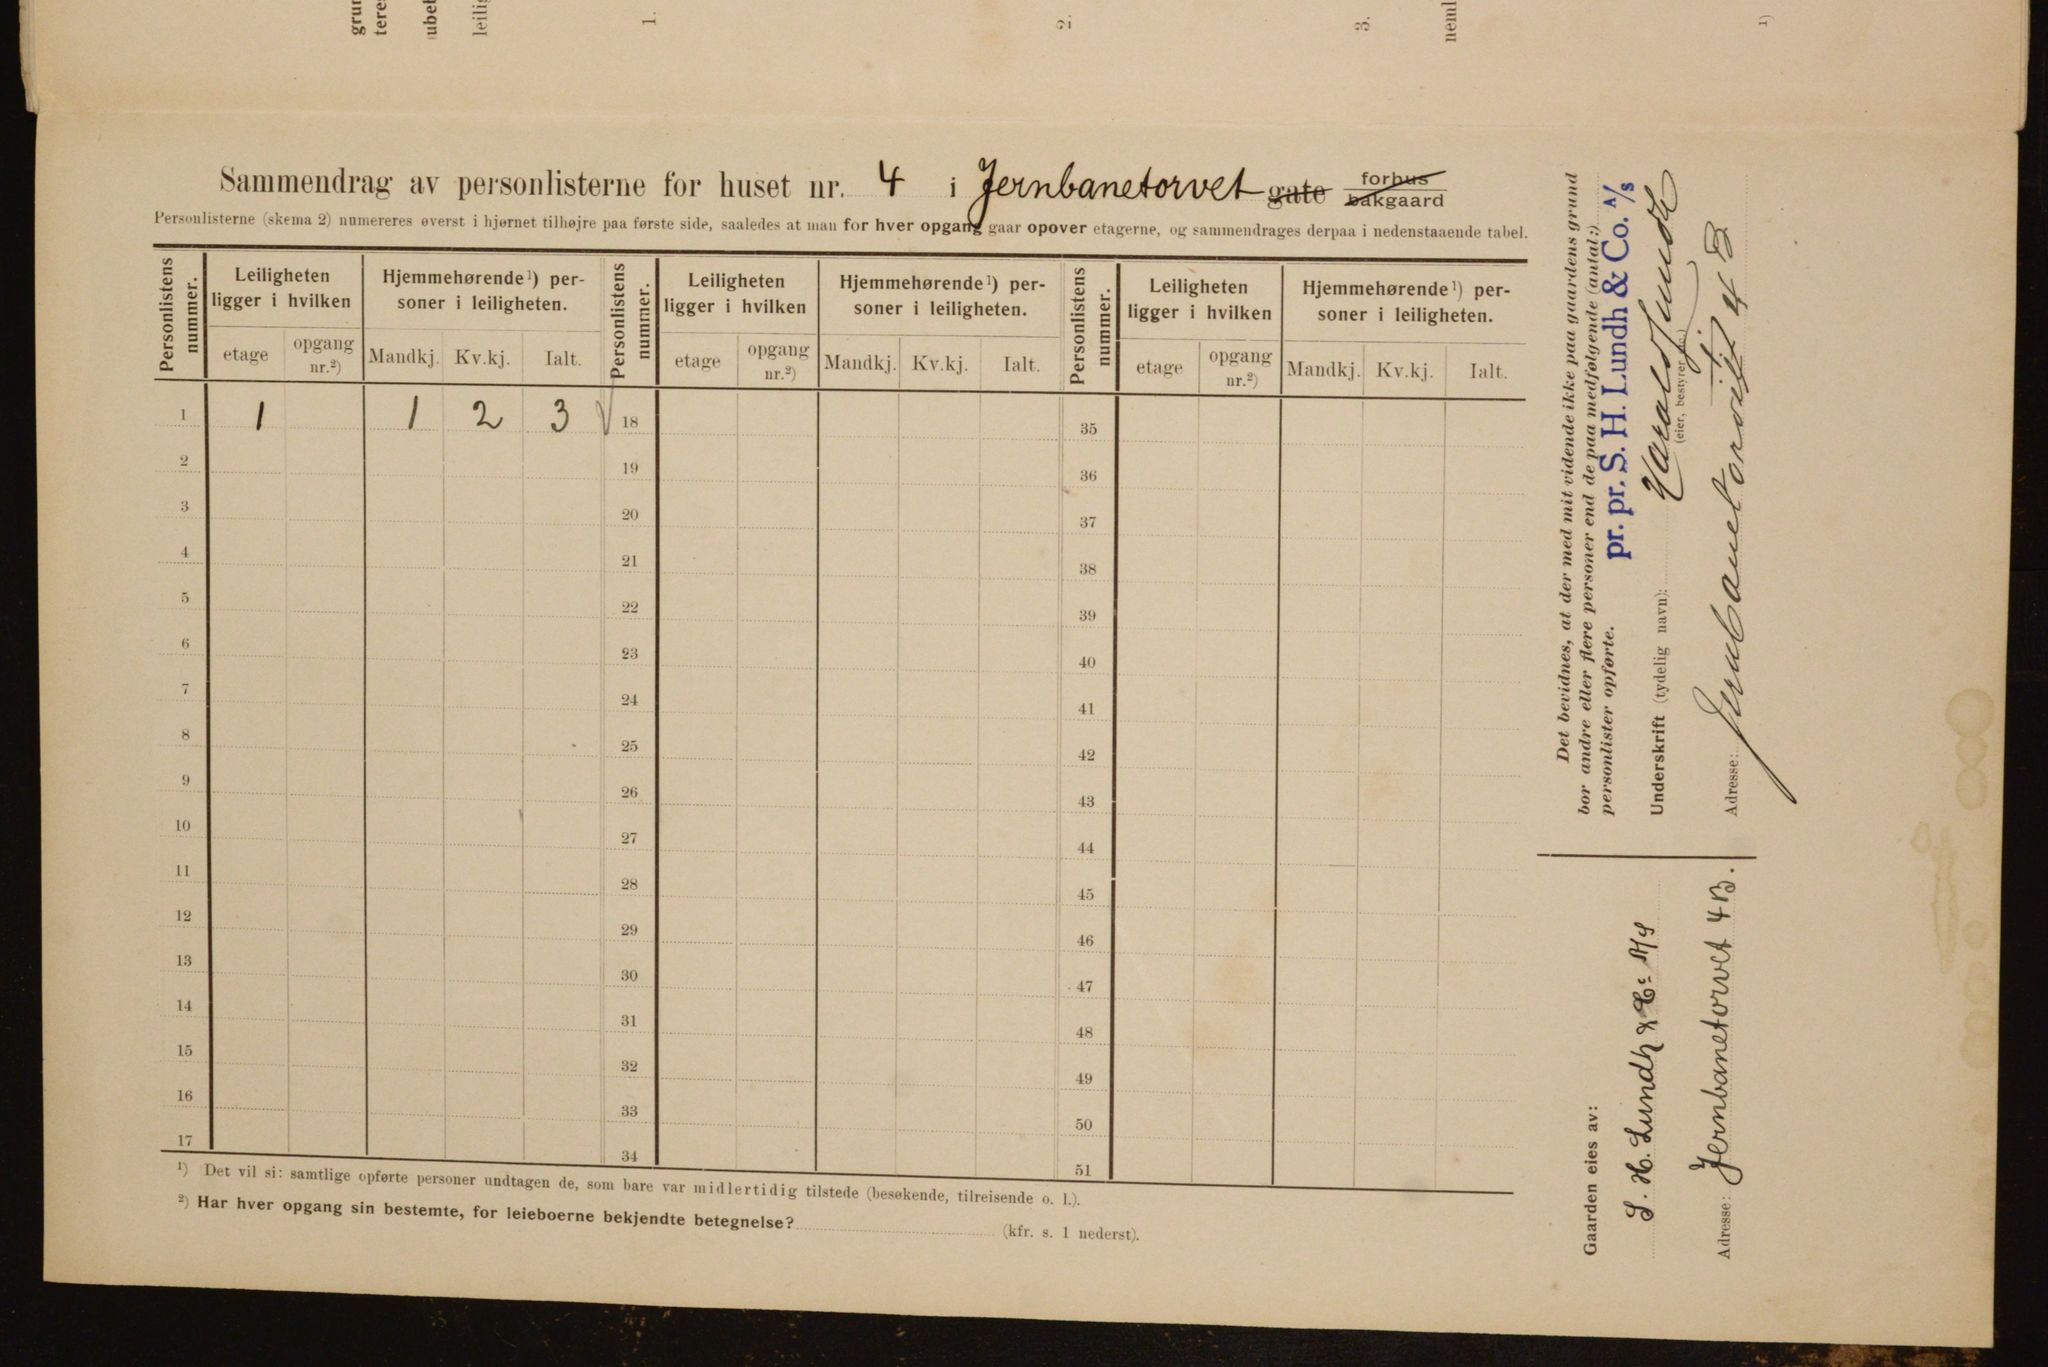 grun
teres
ubet
leilig
1.
2.
3.
neml
1)
Sammendrag av personlisterne for huset nr. 4 i Jernbanetorvet gate forhus
bakgaard
Personlisterne (skema 2) numereres øverst i hjørnet tilhøjre paa første side, saaledes at man for hver opgang gaar opover etagerne, og sammendrages derpaa i nedenstaaende tabel.
Personlistens nummer. Leiligheten ligger i hvilken Hjemmehørende¹) personer i leiligheten. Personlistens nummer. Leiligheten ligger i hvilken Hjemmehørende¹) personer i leiligheten. Personlistens nummer. Leiligheten ligger i hvilken Hjemmehørende¹) personer i leiligheten.
etage opgang nr.²) Mandkj. Kv.kj. Ialt. etage opgang nr.²) Mandkj. Kv.kj. Ialt. etage opgang nr.²) Mandkj. Kv.kj. Ialt.
1 1 1 2 3 18 35
2 19 36
3 20 37
4 21 38
5 22 39
6 23 40
7 24 41
8 25 42
9 26 43
10 27 44
11 28 45
12 29 46
13 30 47
14 31 48
15 32 49
16 33 50
17 34 51
¹) Det vil si: samtlige opførte personer undtagen de, som bare var midlertidig tilstede (besøkende, tilreisende o. l.).
²) Har hver opgang sin bestemte, for leieboerne bekjendte betegnelse? (kfr. s. 1 nederst).
Det bevidnes, at der med mit vidende ikke paa gaardens grund
bor andre eller flere personer end de paa medfølgende (antal:)
personlister opførte.
pr. pr. S. H. Lundh & Co. A/s
Underskrift (tydelig navn): Harald Lundh
(eier, bestyrer etc.)
Adresse: Jernbanetorvet 4 B
Gaarden eies av:
S. H. Lundh & Co A/S
Adresse: Jernbanetorvet 4B.